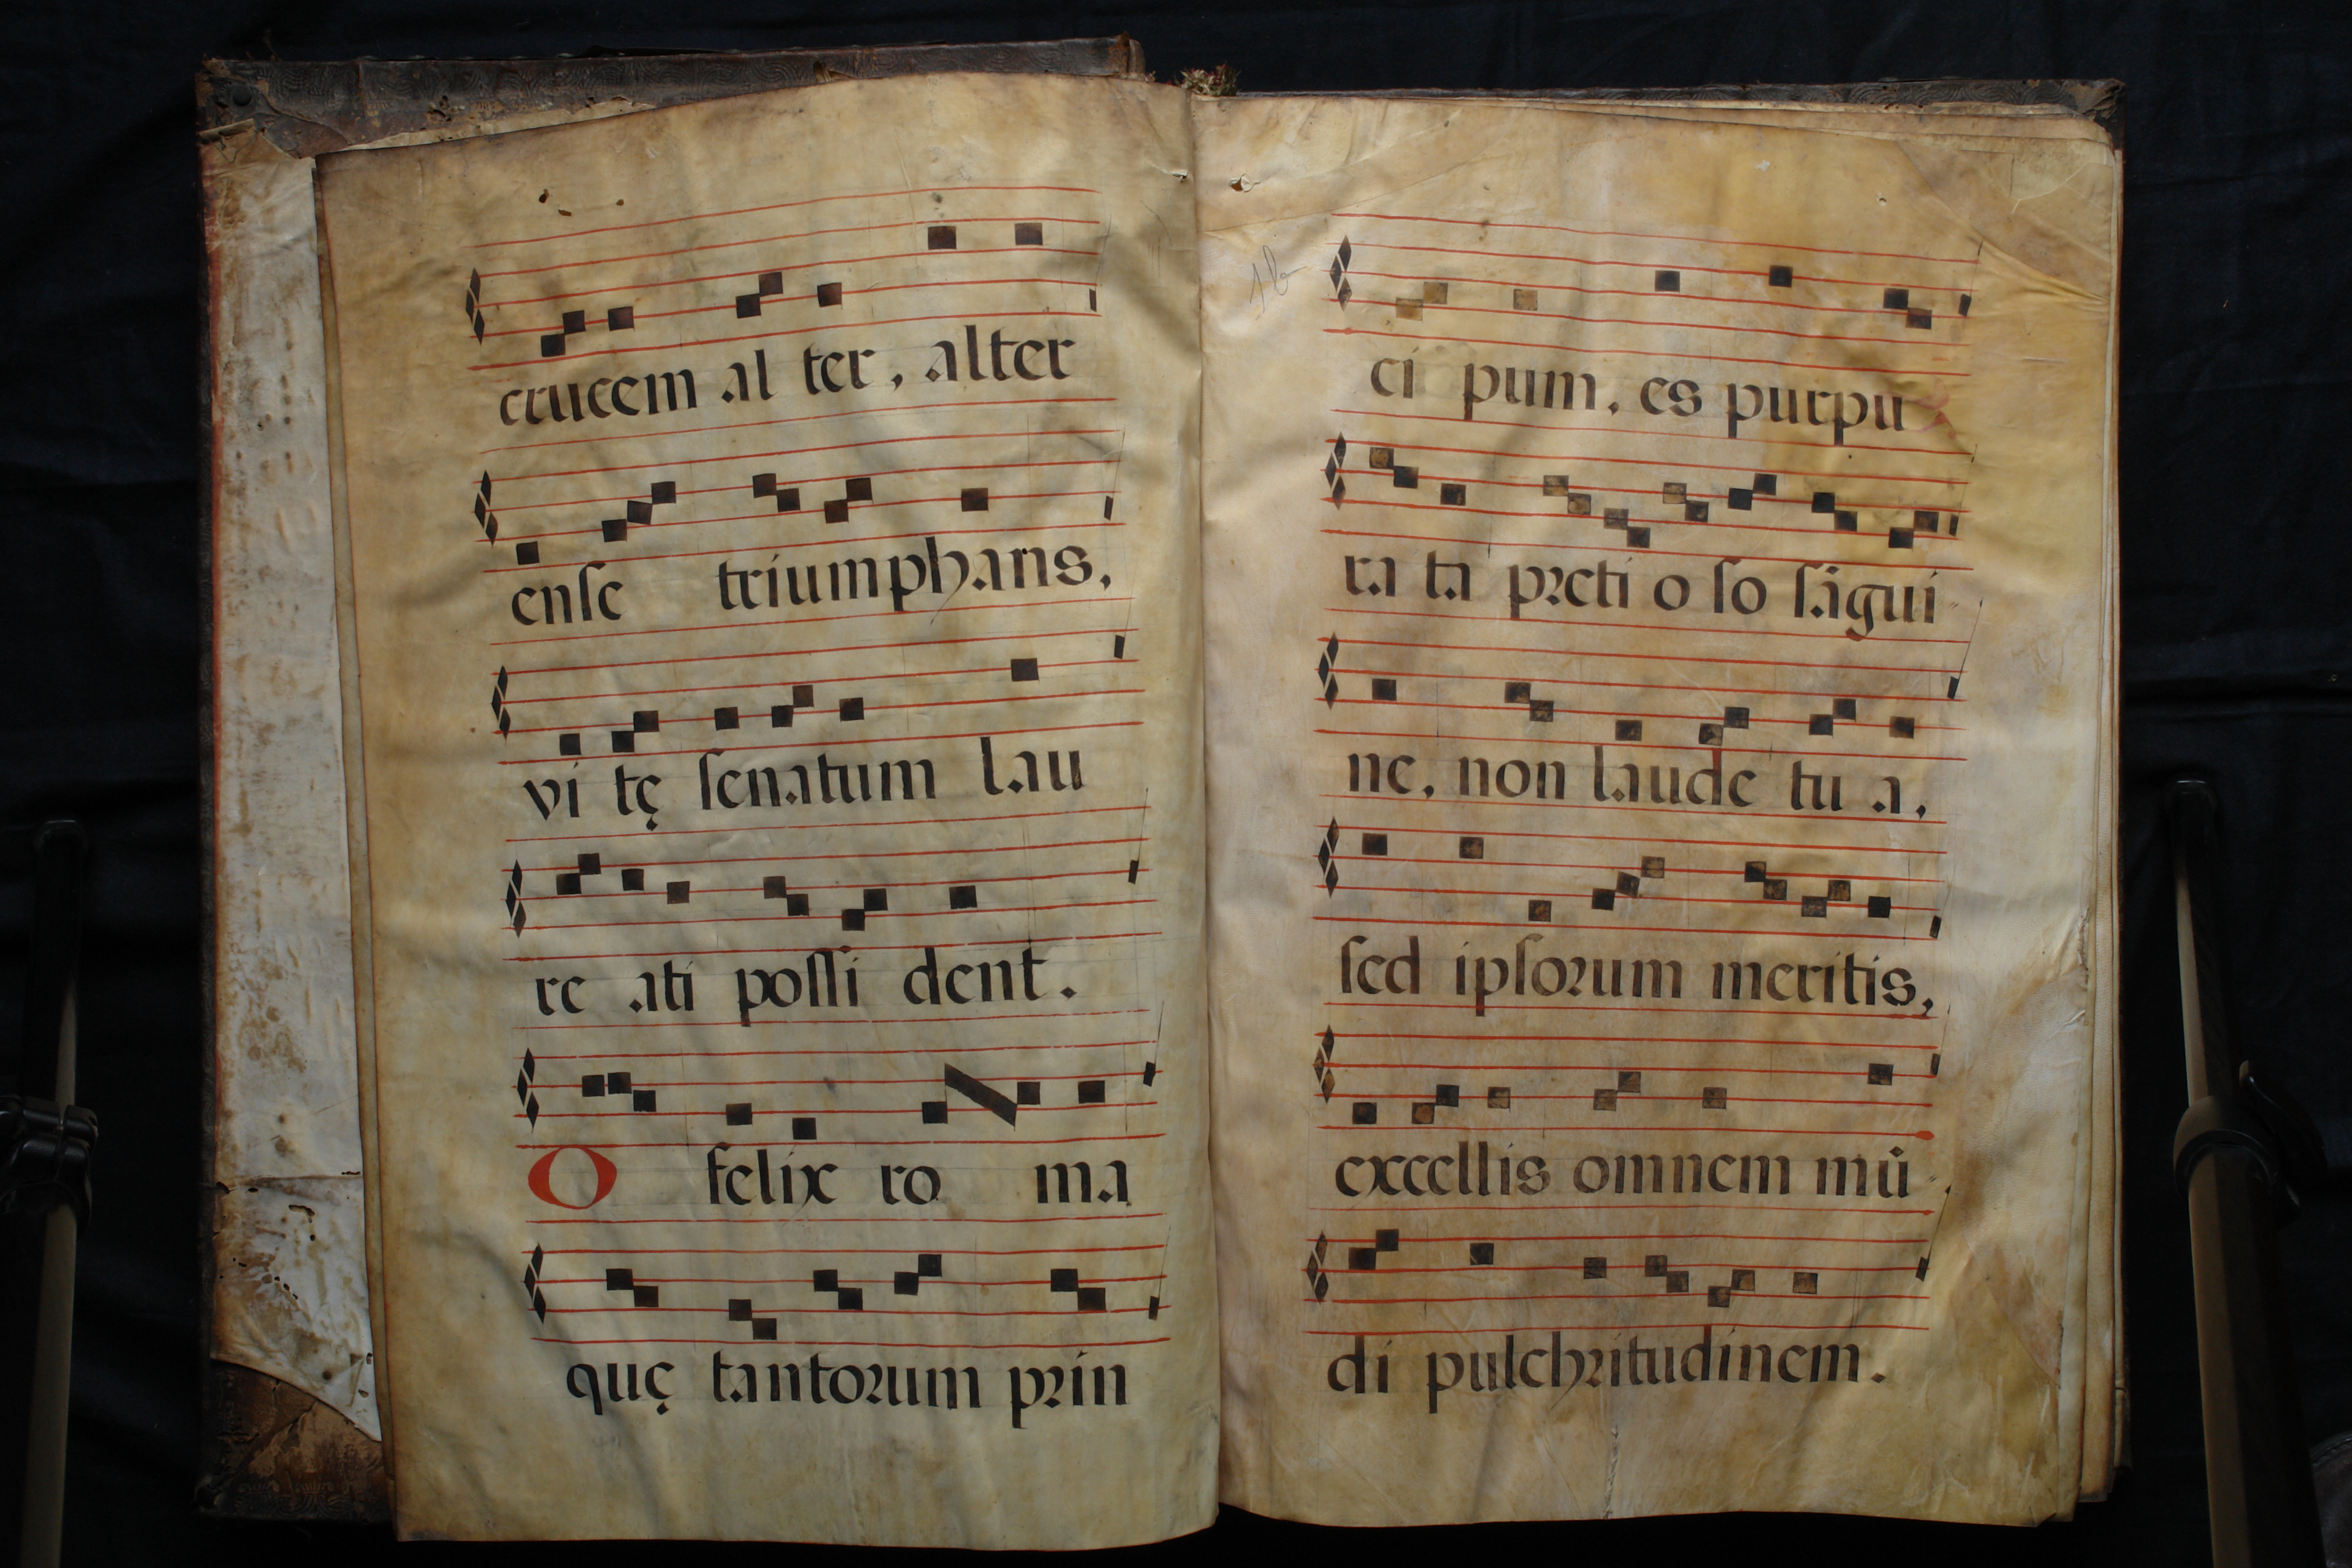 crucem al ter, alter
enſe triumphans,
vi tę ſenatum lau
re ati poſſi dent.
O felix ro ma
quę tantoꝛum pꝛin
ci pum, es purpu
ra ta pꝛeti o ſo ſāgui
ne, non laude tu a,
ſed ipſoꝛum meritis,
excellis omnem mū
di pulchꝛitudinem.